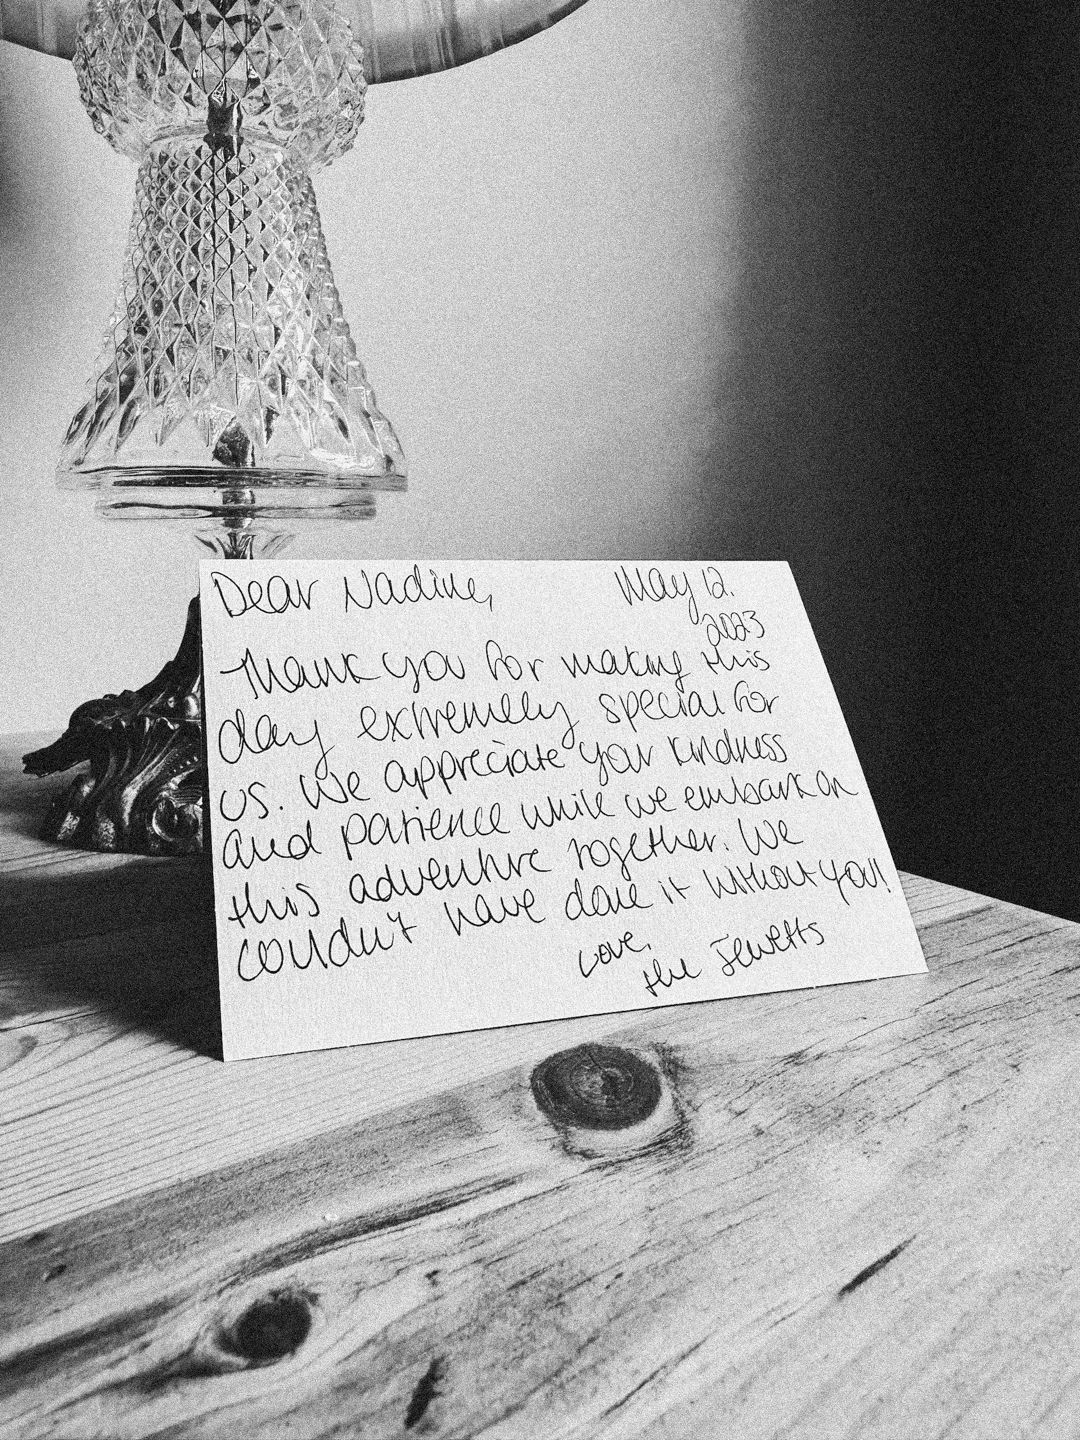 Dear Nadine,
May 12.
2023
Thank you for making this
day extremely special for
us. We appreciate your kindness
and patience while we embark on
this adventure together. We
couldn't have done it without you!
Love,
the Jewetts